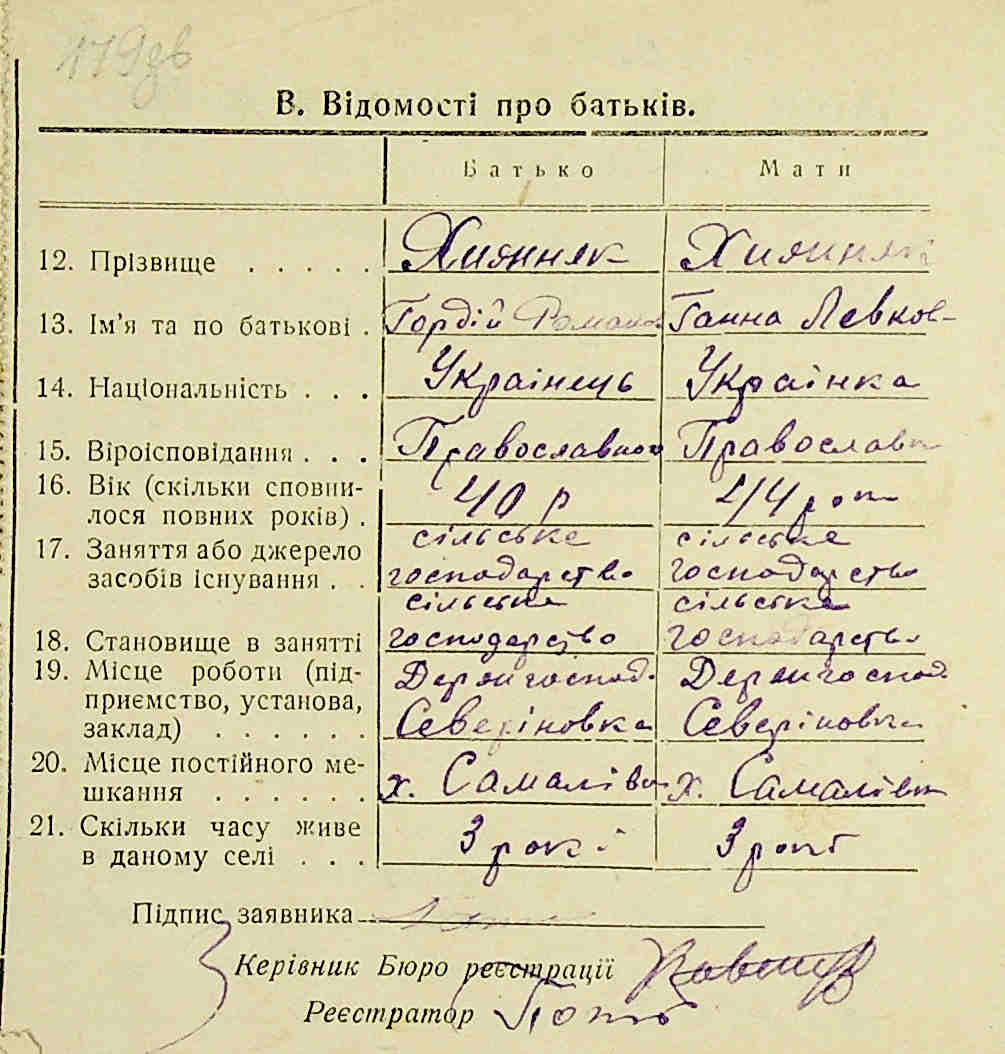 179зв
В. Відомості про батьків.
Батько Мати
12. Прізвище . . . . . Хиянняк Хиянняк
13. Ім'я та по батькові . Гордій Роман Ганна Левков-
14. Національність . . . Украінець Украінка
15. Віроісповідання . . . Православної Православн
16. Вік (скільки сповни-
лося повних років) . 40 р 44 роки
17. Заняття або джерело сільське сільське
засобів існування . . господарство господарство
сільське сільське
18. Становище в занятті господарство господарство
19. Місце роботи (під- Держгоспод. Держгоспод.
приємство, установа,
заклад) . . . . . . Северіновка Северіновка
20. Місце постійного ме-
шкання . . . . . . х. Самалівка х. Самалівка
21. Скільки часу живе
в даному селі . . . 3 рокі 3 рокі
Підпис заявника
Керівник Бюро реєстрації
Реєстратор